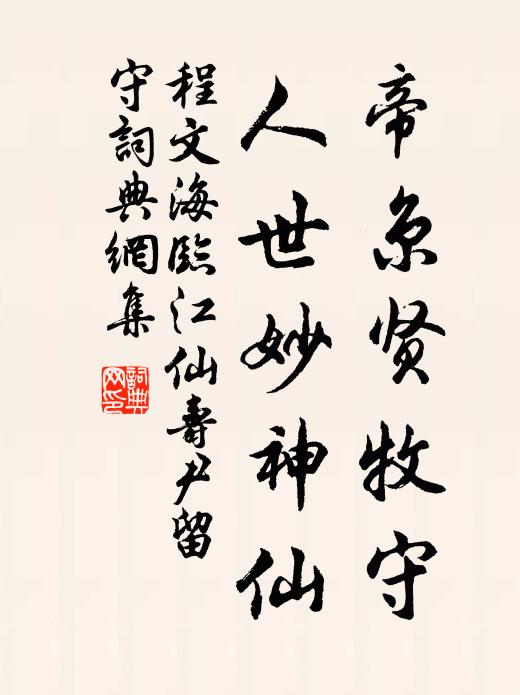 帝京贤牧守
人世妙神仙
程文海臨江仙壽尹留
守詞典網集
詞典
网印